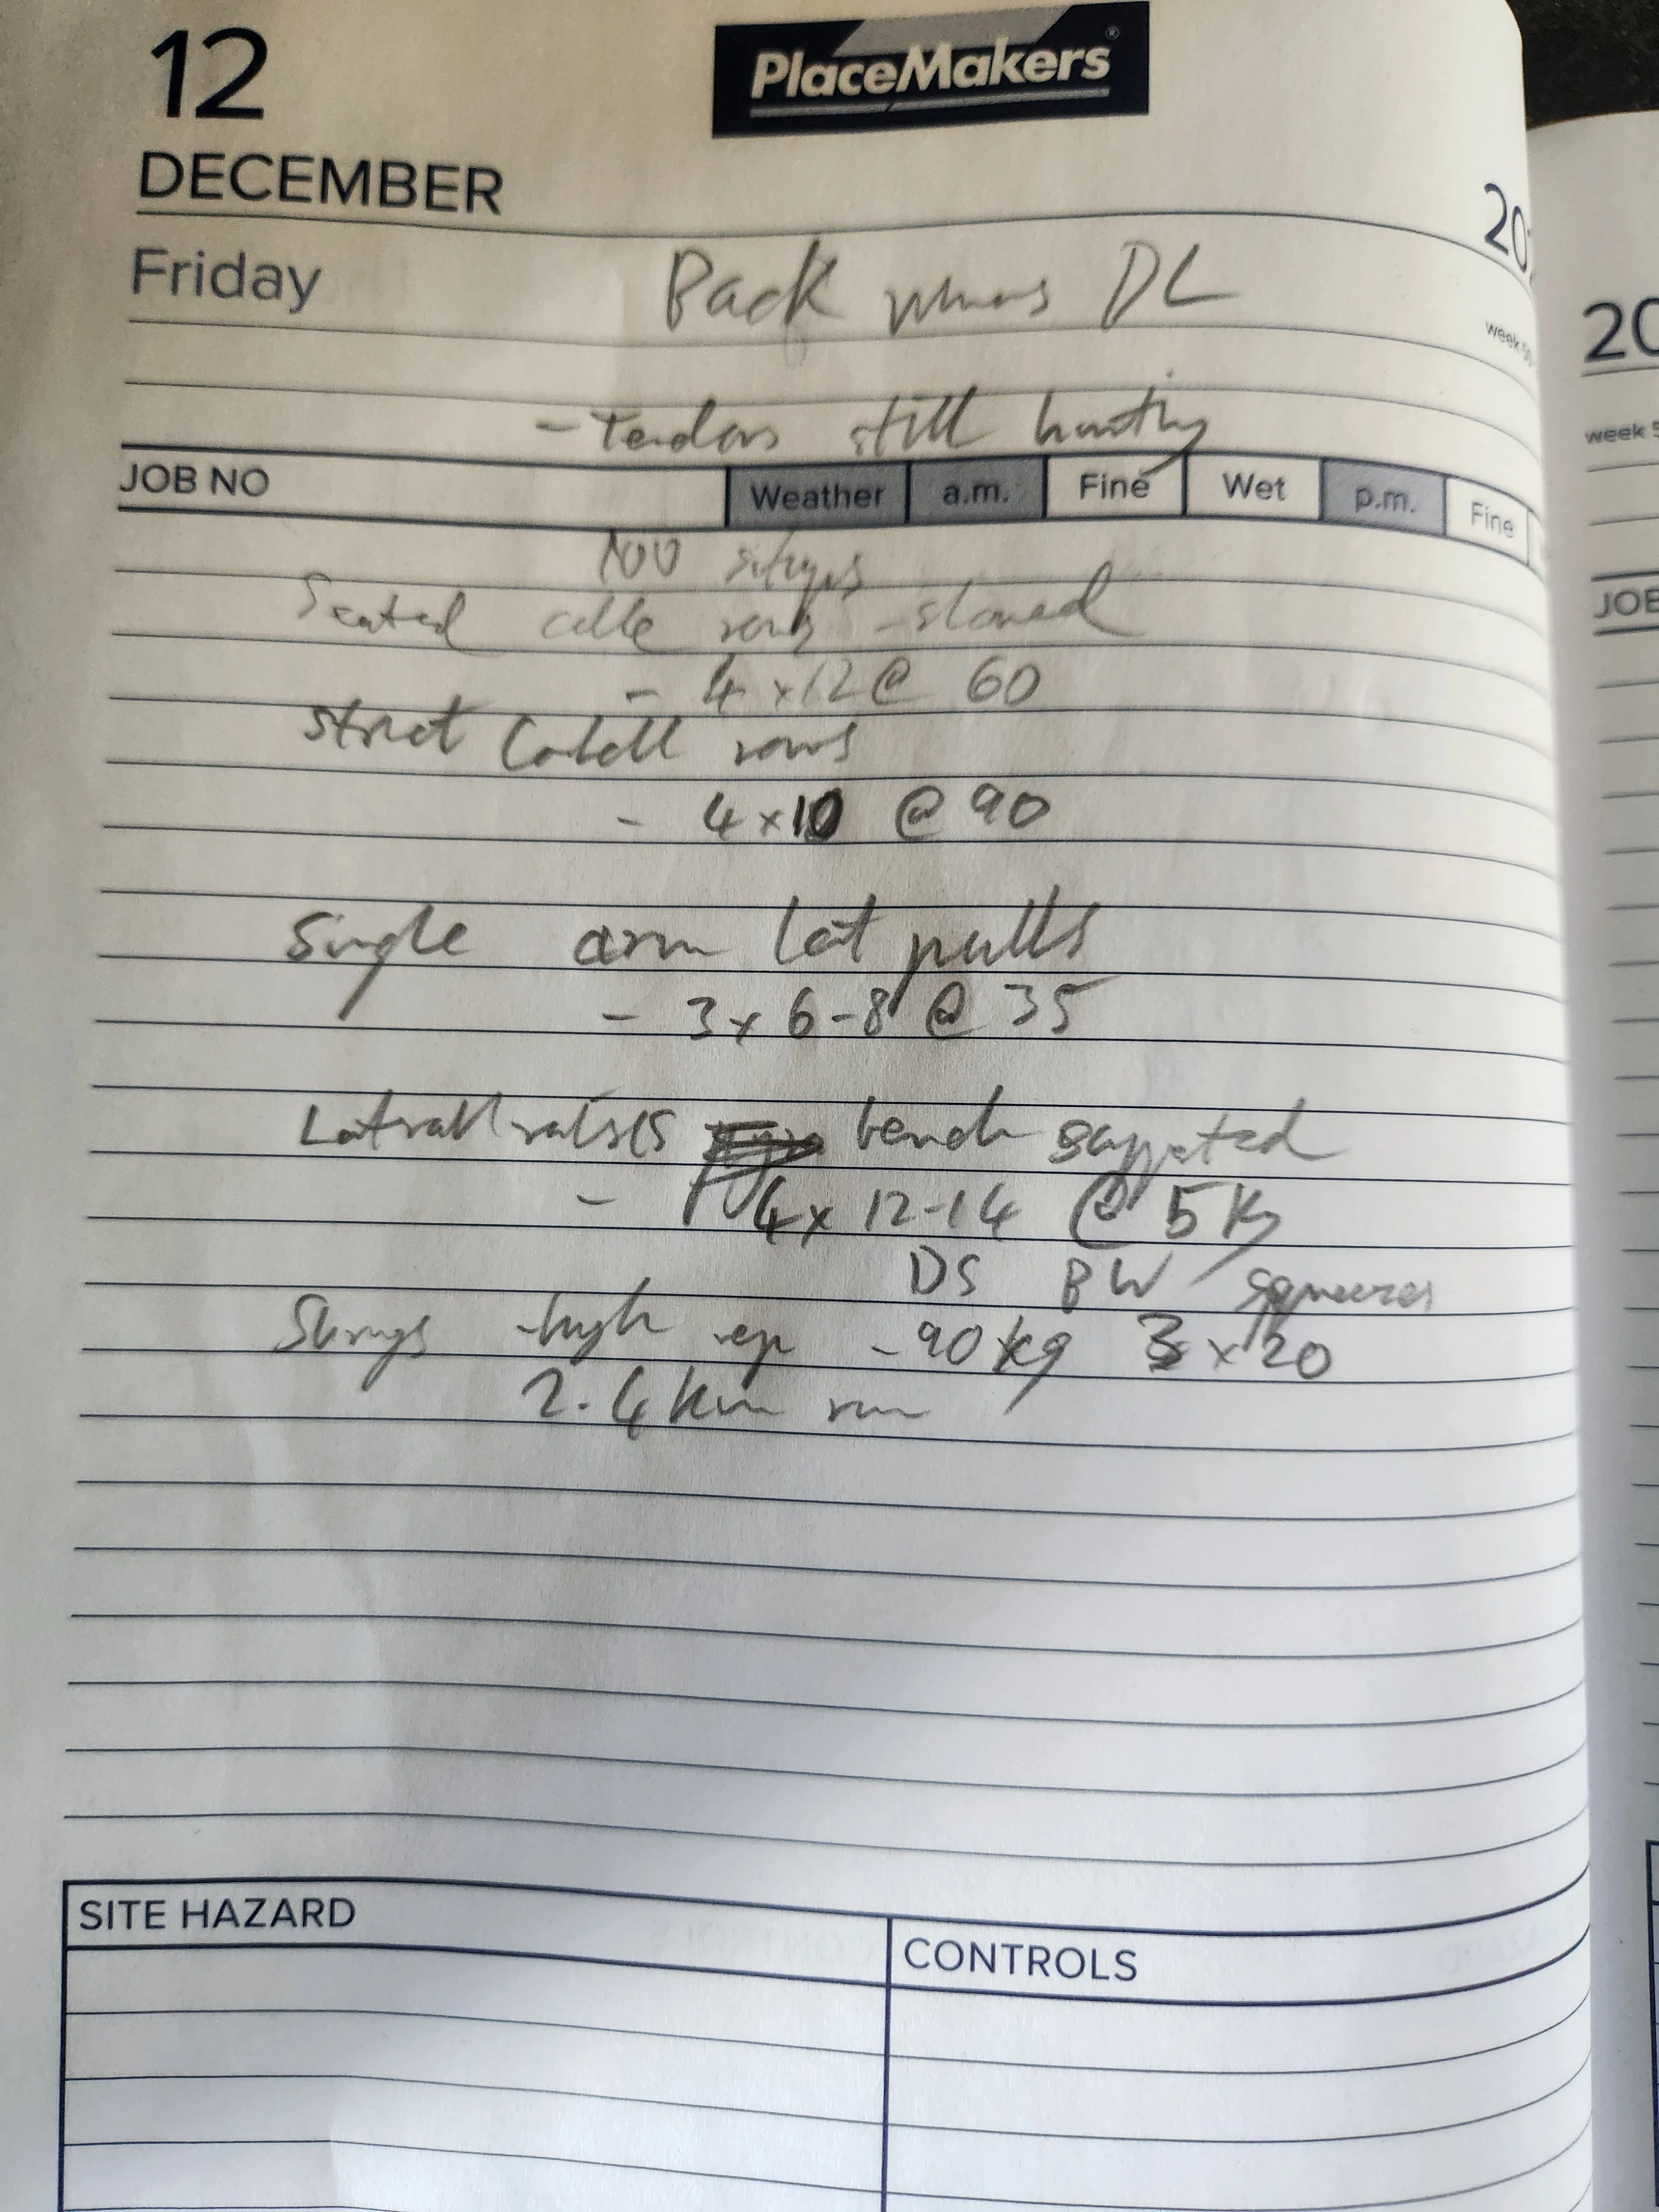 12
PlaceMakers®
DECEMBER
20
Friday
Back minus DL
week 50
20
- Tendons still hurting
week 5
JOB NO Weather a.m. Fine Wet p.m. Fine
100 situps
JOB
Seated cable rows - slowed
- 4 x 12 @ 60
Strict Cabell rows
- 4 x 10 @ 90
Single arm lat pulls
- 3 x 6-8 @ 35
Latrall raises bench suppated
- 4 x 12-14 @ 5 Kg
DS BW squeezes
Shrugs - high rep - 90 kg 3 x 20
2.4 Km run
SITE HAZARD
CONTROLS